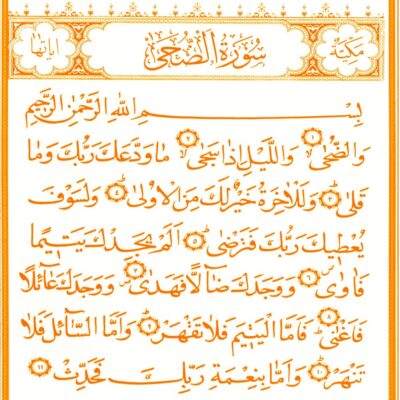 مكية سورة الضحى آياتها
بِسْمِ اللهِ الرَّحْمٰنِ الرَّحِيْمِ
وَالضُّحٰى ۝١ وَاللَّيْلِ اِذَا سَجٰى ۝٢ مَا وَدَّعَكَ رَبُّكَ وَمَا
قَلٰى ۝٣ وَلَلْاٰخِرَةُ خَيْرٌ لَّكَ مِنَ الْاُوْلٰى ۝٤ وَلَسَوْفَ
يُعْطِيْكَ رَبُّكَ فَتَرْضٰى ۝٥ اَلَمْ يَجِدْكَ يَتِيْمًا
فَاٰوٰى ۝٦ وَوَجَدَكَ ضَآلًّا فَهَدٰى ۝٧ وَوَجَدَكَ عَآئِلًا
فَاَغْنٰى ۝٨ فَاَمَّا الْيَتِيْمَ فَلَا تَقْهَرْ ۝٩ وَاَمَّا السَّآئِلَ فَلَا
تَنْهَرْ ۝١٠ وَاَمَّا بِنِعْمَةِ رَبِّكَ فَحَدِّثْ ۝١١